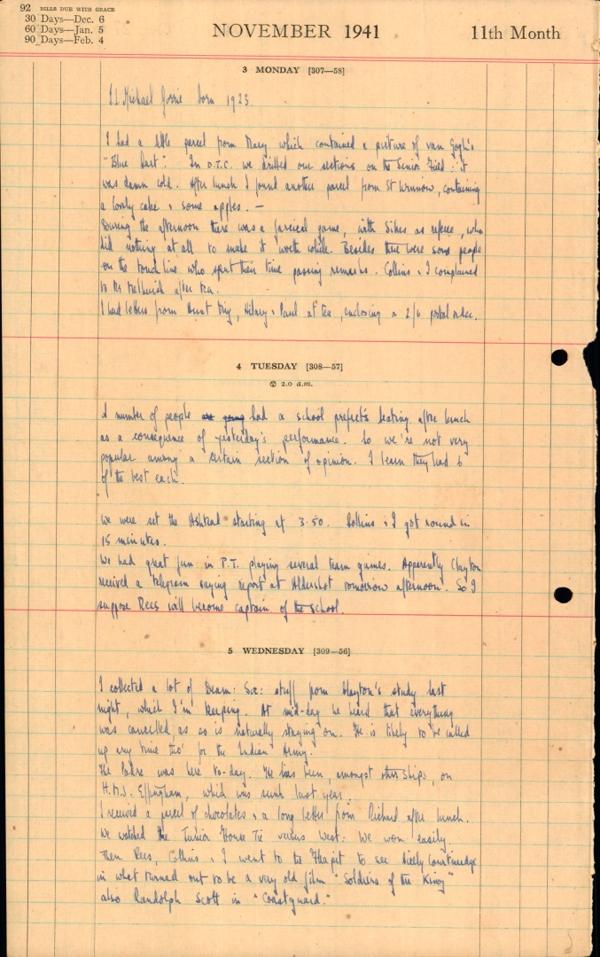 92 BILLS DUE WITH GRACE
30 Days—Dec. 6
60 Days—Jan. 5
90 Days—Feb. 4
NOVEMBER 1941
11th Month
3 MONDAY [307—58]
Michael born 1923.
I had a little parcel from Mary which contained a picture of van Gogh's
"Blue Cart". In O.T.C. we drilled our sections on the Senior Field: it
was damn cold. After lunch I found another parcel from St containing
a lovely cake & some apples. —
During the afternoon there was a farcical game, with Sikes as referee, who
did nothing at all to make it worth while. Besides there were some people
on the touch line who spent their time passing remarks. Collins & I complained
to Mr after tea.
I had letters from Aunt Hilary & Paul at tea, enclosing a 2/6 postal order.
4 TUESDAY [308—57]
2.0 a.m.
A number of people are going had a school prefect's beating after lunch
as a consequence of yesterday's performance. So we're not very
popular among a certain section of opinion. I learn they had 6
of the best each.
We were set the Ashtead starting at 3.50. Collins & I got round in
15 minutes.
We had great fun in P.T. playing several team games. Apparently Clayton
received a telegram saying report at Aldershot tomorrow afternoon. So I
suppose Rees will become captain of the school.
5 WEDNESDAY [309—56]
I collected a lot of Dram: Soc: stuff from Clayton's study last
night, which I'm keeping. At mid-day he heard that everything
was cancelled, so is naturally staying on. He is likely to be called
up any time tho' for the Indian Army.
The Padre was here to-day. He has been, amongst other ships, on
H.M.S. Effingham, which was sunk last year.
I received a parcel of chocolates & a long letter from Richard after lunch.
We watched the Junior House Tie versus West: We won easily
Then Rees, Collins & I went to the Fleapit to see Cicely Courtneidge
in what turned out to be a very old film "Soldiers of the King"
also Randolph Scott in "Coastguard."